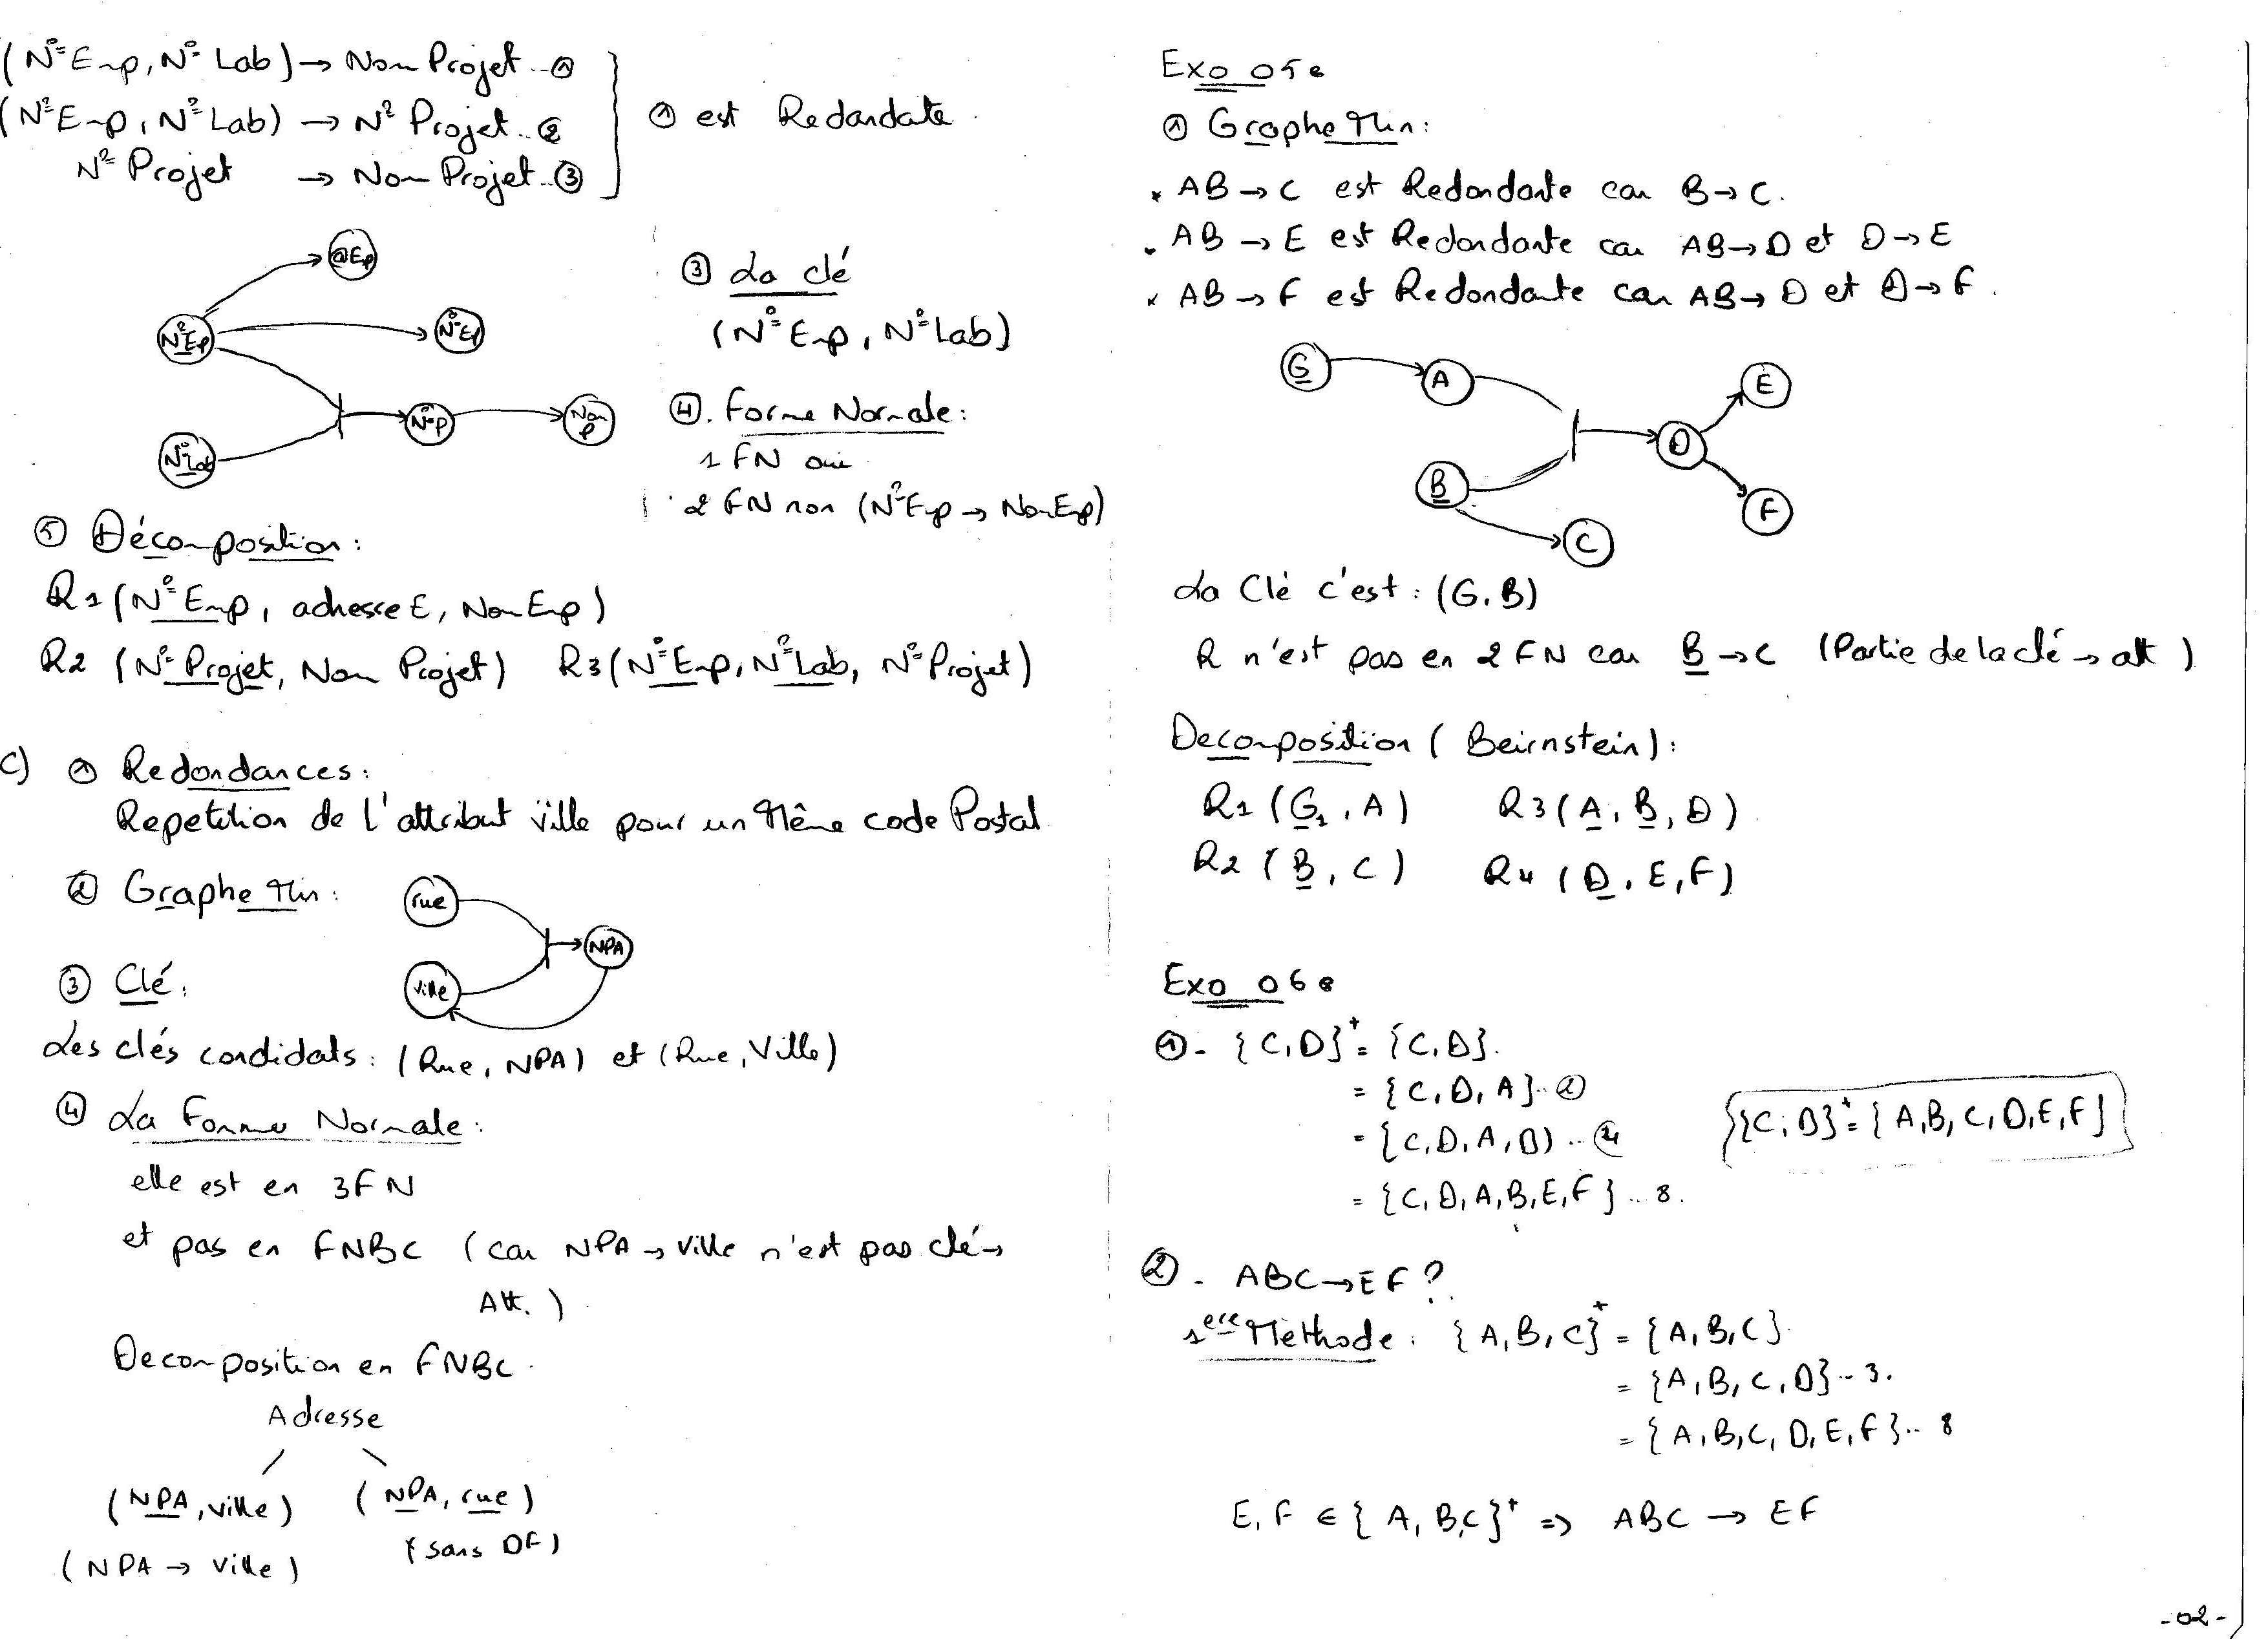 (N° Emp, N° Lab) → Nom Projet .. ①
(N° Emp, N° Lab) → N° Projet .. ②
N° Projet → Nom Projet .. ③
① est Redandate.
@Ep
N°Ep
N°Ep
N°P
Nom P
N°Lab
③ La clé
(N° Emp, N° Lab)
④. Forme Normale :
1 FN oui
2 FN non (N° Emp → Nom Emp)
⑤ Décomposition :
R1 (N° Emp, adresse E, Nom Emp)
R2 (N° Projet, Nom Projet) R3 (N° Emp, N° Lab, N° Projet)
C) ① Redondances :
Repetition de l'attribut ville pour un Même code Postal
② Graphe Min :
rue
NPA
ville
③ Clé :
Les clés condidats : (Rue, NPA) et (Rue, Ville)
④ La Forme Normale :
elle est en 3FN
et pas en FNBC (car NPA → ville n'est pas clé →
Att.)
Decomposition en FNBC.
Adresse
(NPA, ville) (NPA, rue)
(NPA → ville) (sans DF)
Exo 05 :
① Graphe Min :
* AB → C est Redondante car B → C.
. AB → E est Redondante car AB → D et D → E
* AB → F est Redondante car AB → D et D → F.
G
A
E
D
B
F
C
La Clé c'est : (G, B)
R n'est pas en 2 FN car B → C (Partie de la clé → att)
Decomposition (Beirnstein) :
R1 (G, A) R3 (A, B, D)
R2 (B, C) R4 (D, E, F)
Exo 06 :
①- {C, D}⁺ = {C, D}.
= {C, D, A} .. ②
= {C, D, A, B) ..
= {C, D, A, B, E, F} .. 8.
{C, D}⁺ = {A, B, C, D, E, F}
②- ABC → EF ?
1ere Méthode : {A, B, C}⁺ = {A, B, C}.
= {A, B, C, D} .. 3.
= {A, B, C, D, E, F} .. 8
E, F ∈ {A, B, C}⁺ => ABC → EF
-02-